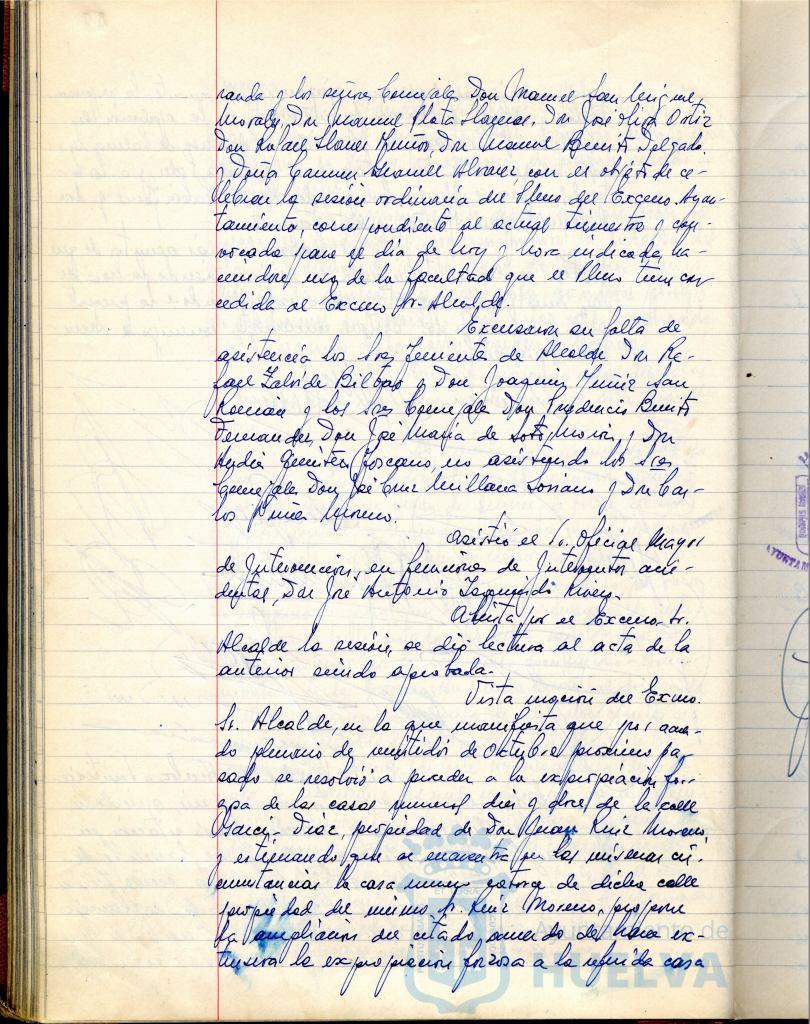 randa y los señores Concejales Don Manuel San Miguel
Morales, Don Manuel Plata Llagunes, Don José Oliva Ortiz
Don Rafael Llanes Muñoz, Don Manuel Benito Delgado.
y Doña Carmen Alvarez, con el objeto de ce-
lebrar la sesión ordinaria del Pleno del Excmo. Ayun-
tamiento, correspondiente al actual trimestre y con-
vocada para el día de hoy y hora indicada, ha-
ciendose uso de la facultad que el Pleno tiene con
cedida al Excmo Sr. Alcalde.
Excusaron su falta de
asistencia los Sres Tenientes de Alcalde Don Ra-
fael Zalvide Bilbao y Don Joaquin Muñiz San
Román y los Sres Concejales Don Frederico Benito
Fernandez, Don José María de Soto Morón y Don
Andrés Toscano, no asistiendo los Sres
Concejales Don José Cruz Millana Soriano y Don Car-
los Piña Moreno.
Asistió el Sr. Oficial Mayor
de Intervención, en funciones de Interventor acci-
dental, Don José Antonio Rivera.
Abierta por el Excmo. Sr.
Alcalde la sesión, se dio lectura al acta de la
anterior siendo aprobada.
Vista moción del Excmo.
Sr. Alcalde, en la que manifiesta que por acuer-
do plenario de veintidos de Octubre proximo pa-
sado se resolvió a proceder a la expropiación for-
zosa de las casas numeros diez y doce de la calle
Garci-Diaz, propiedad de Don Juan Ruiz Moreno,
y estimando que se encuentra en las mismas cir-
cunstancias la casa numero catorce de dicha calle
propiedad del mismo Sr. Ruiz Moreno, propone
la ampliación del citado acuerdo de hacer ex-
tensiva la expropiación forzosa a la referida casa
Ayuntamiento de
HUELVA